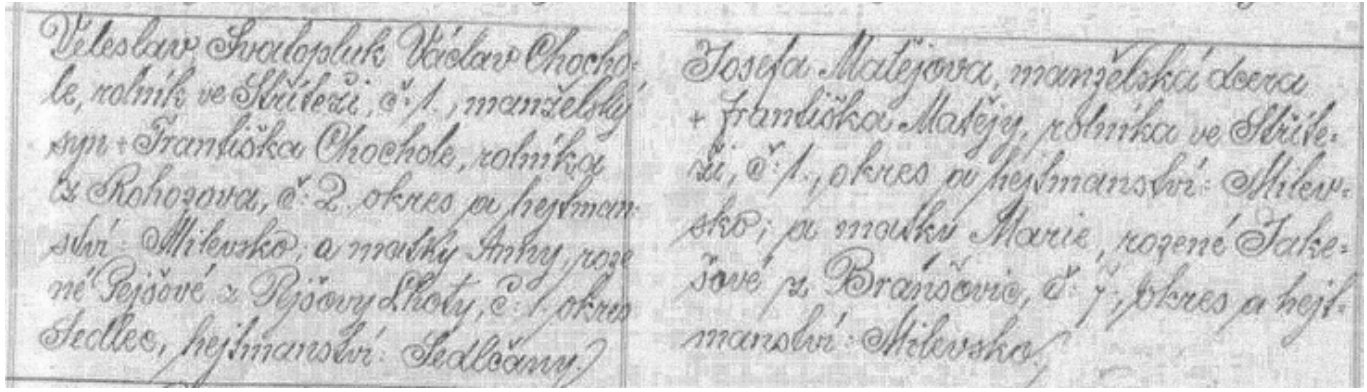 Věleslav Svatopluk Václav Chocho-
le, rolník ve Stříteži, č: 1., manželský
syn + Františka Chochole, rolníka
z Rohozova, č: 2. okres a hejtman-
ství: Milevsko; a matky Anny, roze
né Pejšové z Pejšovy Lhoty, č: 1. okres
Sedlec, hejtmanství: Sedlčany.
Josefa Matějova, manželská dcera
+ Františka Matějy, rolníka ve Stříte-
ži, č: 1., okres a hejtmanství: Milev-
sko; a matky Marie, rozené Jake-
šové z Branšovic, č: 7., okres a hejt-
manství: Milevsko.